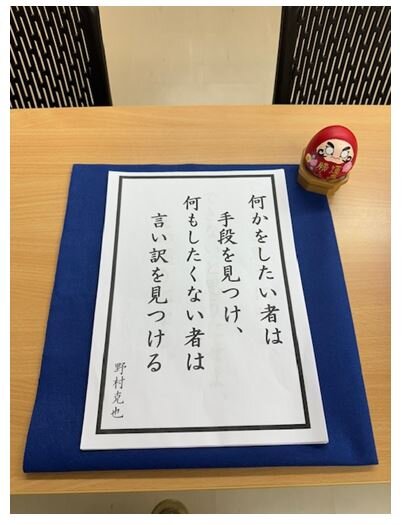 何かをしたい者は
手段を見つけ、
何もしたくない者は
言い訳を見つける
野村克也